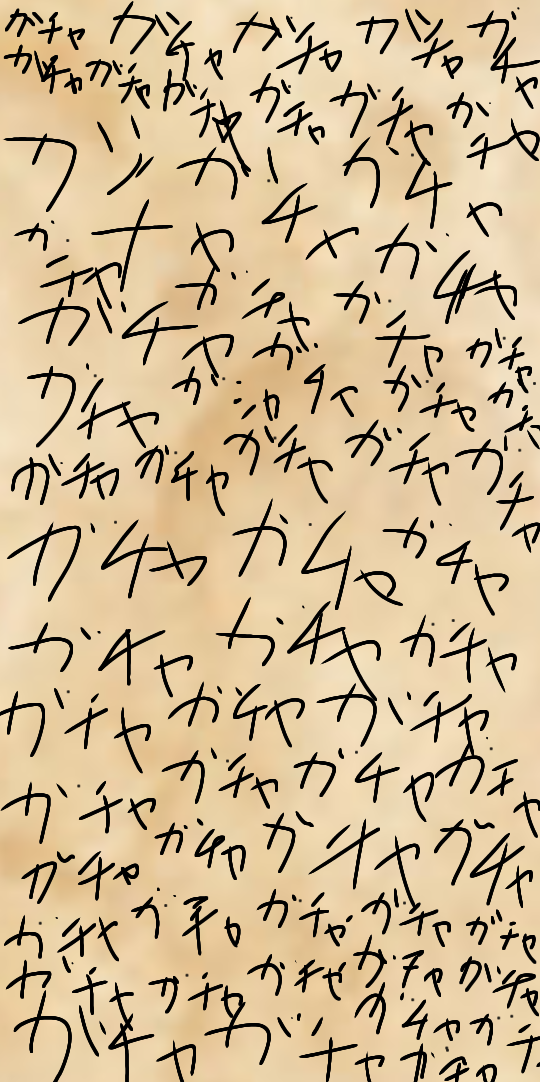 ガチャ ガチャ ガチャ ガチャ ガチャ
ガチャ ガチャ ガチャ ガチャ ガチャ ガチャ
ガチャ ガチャ ガチャ
ガチャ ガチャ ガチャ ガチャ
ガチャ ガチャ ガチャ ガチャ
ガチャ ガチャ ガチャ ガチャ ガチャ
ガチャ ガチャ ガチャ ガチャ ガチャ
ガチャ ガチャ ガチャ
ガチャ ガチャ ガチャ
ガチャ ガチャ ガチャ
ガチャ ガチャ ガチャ ガチャ
ガチャ ガチャ ガチャ ガチャ
ガチャ ガチャ ガチャ ガチャ ガチャ
ガチャ ガチャ ガチャ ガチャ ガチャ
ガチャ ガチャ ガチャ ガチャ